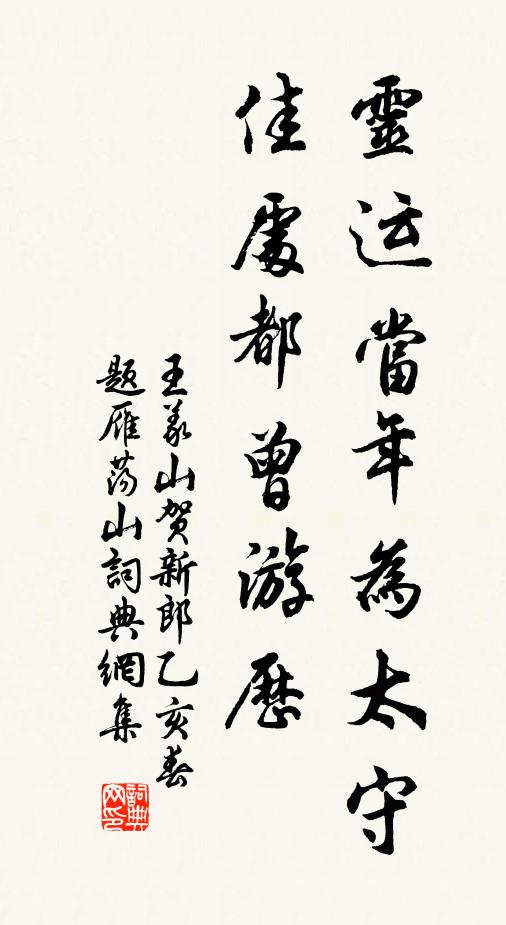 靈运當年為太守
佳處都曾游歷
王義山賀新郎乙亥春
題雁蕩山詞典網集
詞典
网印